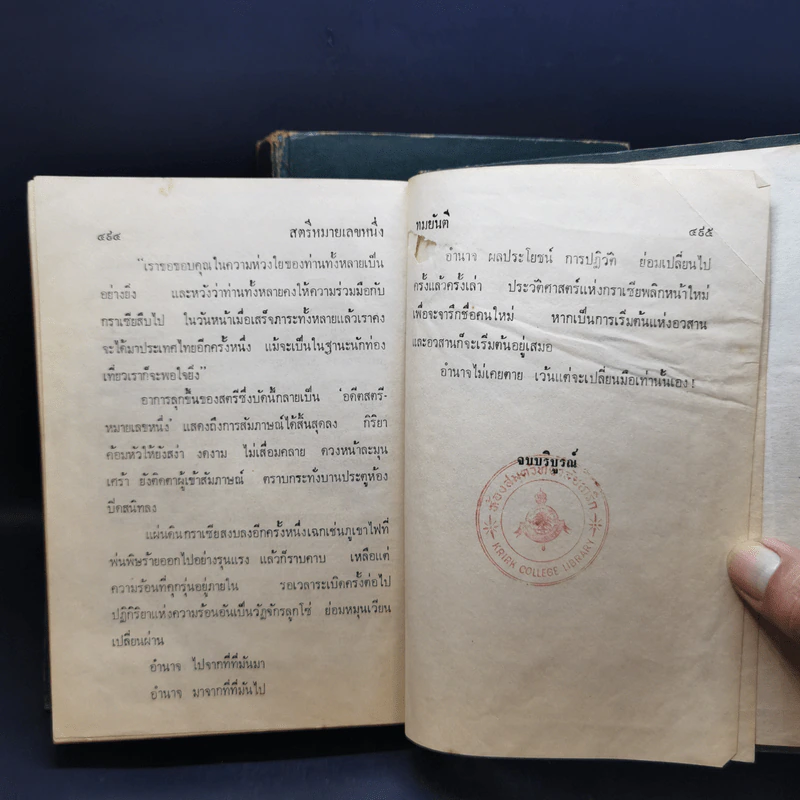 ๔๙๔ สตรีหมายเลขหนึ่ง
"เราขอขอบคุณในความห่วงใยของท่านทั้งหลายเป็น
อย่างยิ่ง และหวังว่าท่านทั้งหลายคงให้ความร่วมมือกับ
กราเซียสืบไป ในวันหน้าเมื่อเสร็จภาระทั้งหลายแล้วเราคง
จะได้มาประเทศไทยอีกครั้งหนึ่ง แม้จะเป็นในฐานะนักท่อง
เที่ยวเราก็จะพอใจยิ่ง"
อาการลุกขึ้นของสตรีซึ่งบัดนี้กลายเป็น 'อดีตสตรี-
หมายเลขหนึ่ง' แสดงถึงการสัมภาษณ์ได้สิ้นสุดลง กิริยา
ค้อมหัวให้ยังสง่า งดงาม ไม่เสื่อมคลาย ดวงหน้าละมุน
เศร้า ยังติดตาผู้เข้าสัมภาษณ์ ตราบกระทั่งบานประตูห้อง
ปิดสนิทลง
แผ่นดินกราเซียสงบลงอีกครั้งหนึ่งเฉกเช่นภูเขาไฟที่
พ่นพิษร้ายออกไปอย่างรุนแรง แล้วก็ราบคาบ เหลือแต่
ความร้อนที่คุกรุ่นอยู่ภายใน รอเวลาระเบิดครั้งต่อไป
ปฏิกิริยาแห่งความร้อนอันเป็นวัฏจักรลูกโซ่ ย่อมหมุนเวียน
เปลี่ยนผ่าน
อำนาจ ไปจากที่ที่มันมา
อำนาจ มาจากที่ที่มันไป
ทมยันตี ๔๙๕
อำนาจ ผลประโยชน์ การปฏิวัติ ย่อมเปลี่ยนไป
ครั้งแล้วครั้งเล่า ประวัติศาสตร์แห่งกราเซียพลิกหน้าใหม่
เพื่อจะจารึกชื่อคนใหม่ หากเป็นการเริ่มต้นแห่งอวสาน
และอวสานก็จะเริ่มต้นอยู่เสมอ
อำนาจไม่เคยตาย เว้นแต่จะเปลี่ยนมือเท่านั้นเอง!
จบบริบูรณ์
ห้องสมุดวิทยาลัยเกริก
KRIRK COLLEGE LIBRARY